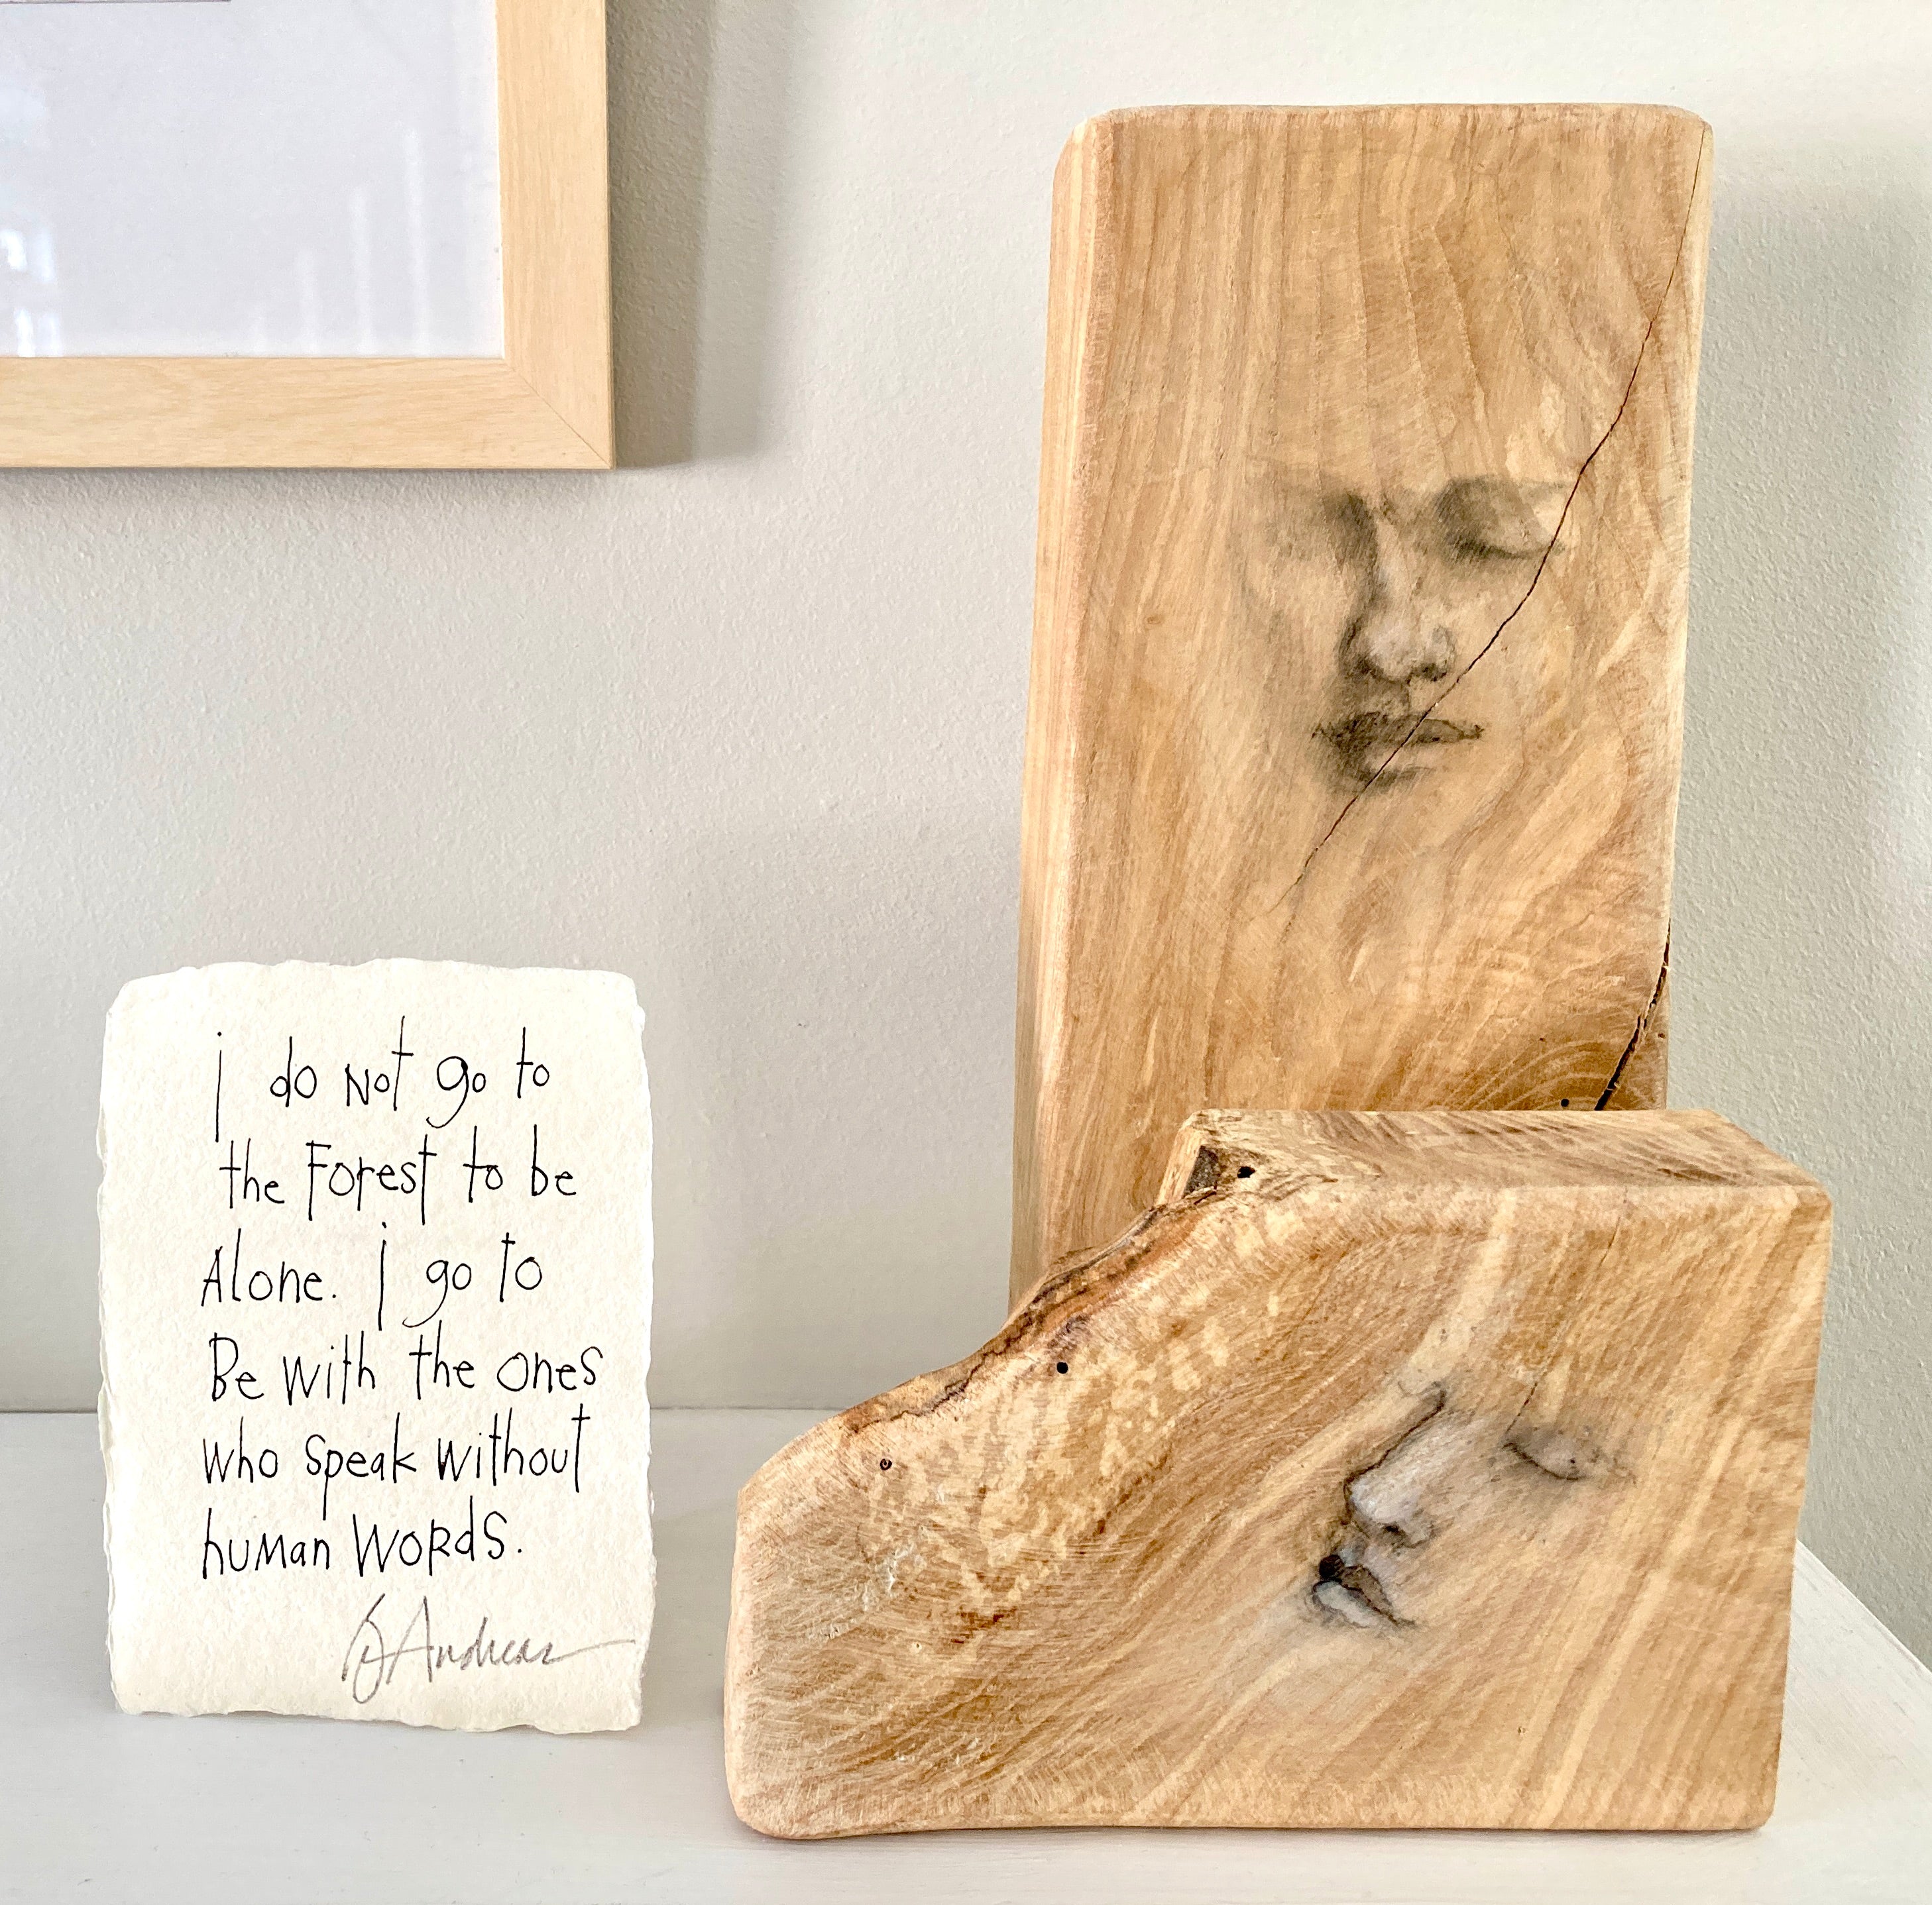 i do Not go to
the Forest to be
Alone. i go to
Be with the ones
who speak without
human WORDS.
Andreas